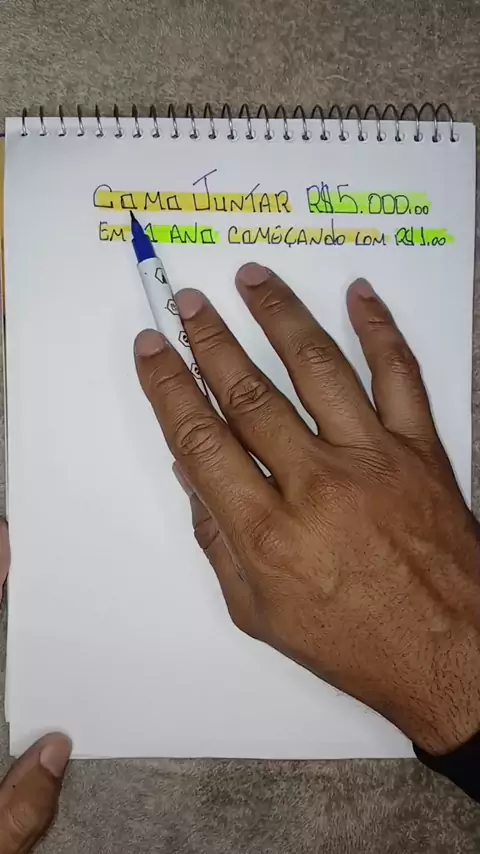 COMO JUNTAR R$5.000,00
EM 1 ANO COMEÇANDO COM R$1,00